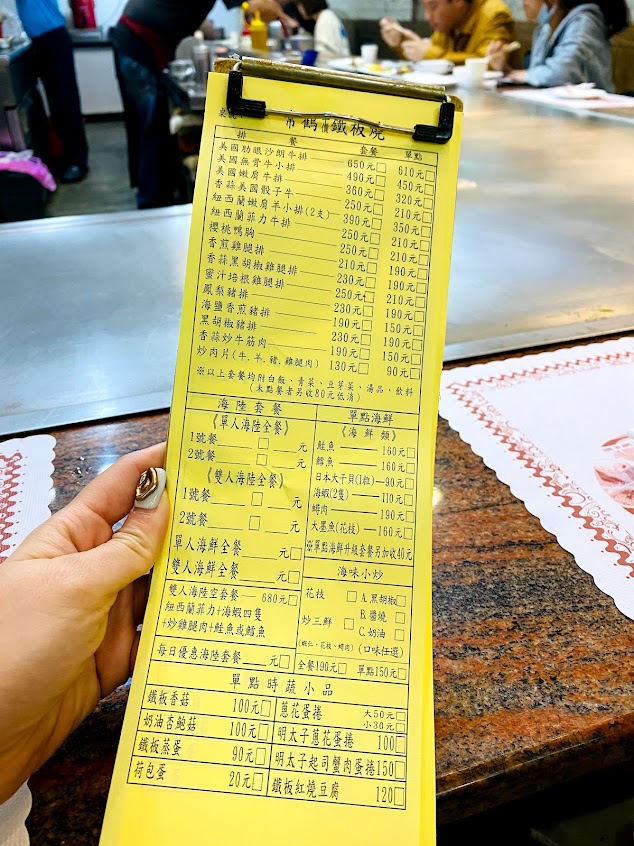 鐵板燒
排 餐 套餐 單點
美國肋眼沙朗牛排 650元□ 610元□
美國無骨牛小排 490元□ 450元□
美國嫩肩牛排 360元□ 320元□
香蒜美國骰子牛 250元□ 210元□
紐西蘭嫩肩羊小排(2支) 390元□ 350元□
紐西蘭菲力牛排 250元□ 210元□
櫻桃鴨胸 250元□ 210元□
香煎雞腿排 210元□ 190元□
香蒜黑胡椒雞腿排 230元□ 190元□
蜜汁培根雞腿排 250元□ 210元□
鳳梨豬排 230元□ 190元□
海鹽香煎豬排 190元□ 150元□
黑胡椒豬排 230元□ 190元□
香蒜炒牛筋肉 190元□ 150元□
炒肉片(牛,羊,豬,雞腿肉) 130元□ 90元□
※以上套餐均附白飯、青菜、豆芽菜、湯品、飲料
(未點餐者另收80元低消)
海陸套餐
《單人海陸全餐》
1號餐 □ 元
2號餐 □ 元
《雙人海陸全餐》
1號餐 □ 元
2號餐 □ 元
單人海鮮全餐 元□
雙人海鮮全餐 元□
雙人海陸空套餐 680元□
紐西蘭菲力+海蝦四隻
+炒雞腿肉+鮭魚或鱈魚
每日優惠海陸套餐 元□
單點海鮮
《海鮮類》
鮭魚 160元□
鱈魚 160元□
日本大干貝(1粒) 90元□
海蝦(2隻) 110元□
蚵肉 190元□
大墨魚(花枝) 160元□
※單點海鮮升級套餐另加收40元
海味小炒
花枝 □ A.黑胡椒□
B.醬燒 □
炒三鮮 □ C.奶油 □
(蝦仁、花枝、蚵肉) (口味任選)
全餐190元□ 單點150元□
單點時蔬小品
鐵板香菇 100元□
奶油杏鮑菇 100元□
鐵板蒸蛋 90元□
荷包蛋 20元□
蔥花蛋捲 大50元□
小30元□
明太子蔥花蛋捲 100□
明太子起司蟹肉蛋捲150□
鐵板紅燒豆腐 120□